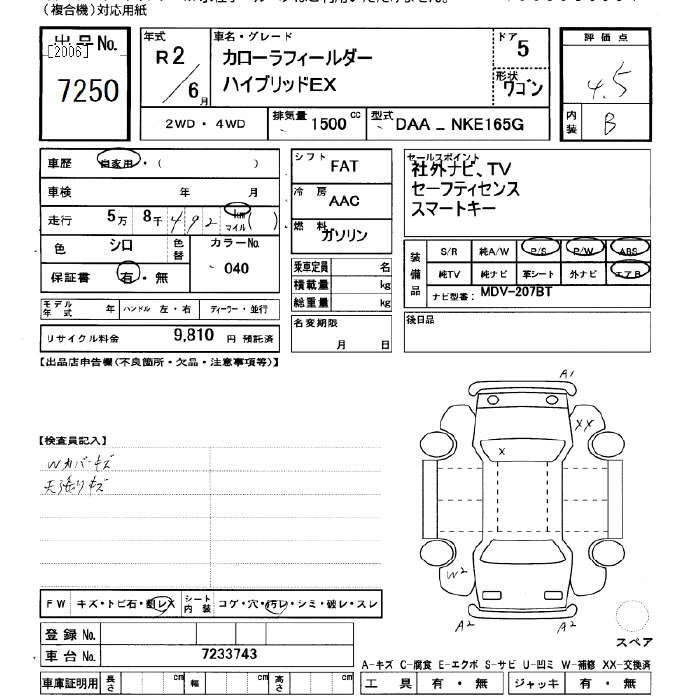 (複合機)対応用紙
出品No.
[2006]
7250
年式
R2
/6月
車名・グレード
カローラフィールダー
ハイブリッドEX
ドア
5
形状
ワゴン
評価点
4.5
内装
B
2WD・4WD
排気量 1500 cc
型式 DAA _ NKE165G
車歴 自家用・( )
車検 年 月
走行 5万 8千 492 km マイル ( )
色 シロ
色替
カラーNo.
040
保証書 有・無
モデル年式 年
ハンドル 左・右
ディーラー・並行
リサイクル料金 9,810 円 預託済
シフト FAT
冷房 AAC
燃料 ガソリン
乗車定員 名
積載量 kg
総重量 kg
名変期限
月 日
セールスポイント
社外ナビ、TV
セーフティセンス
スマートキー
装備品
S/R 純A/W P/S P/W ABS
純TV 純ナビ 革シート 外ナビ エアB
ナビ型番: MDV-207BT
後日品
【出品店申告欄(不良箇所・欠品・注意事項等)】
【検査員記入】
Wカバーキズ
天張りキズ
A1
XX
X
W2
A2
A2
スペア
FW キズ・トビ石・割レX
シート内装 コゲ・穴・汚レ・シミ・破レ・スレ
登録No.
車台No. 7233743
A-キズ C-腐食 E-エクボ S-サビ U-凹ミ W-補修 XX-交換済
車庫証明用 長さ cm 幅 cm 高さ cm
工具 有・無 ジャッキ 有・無